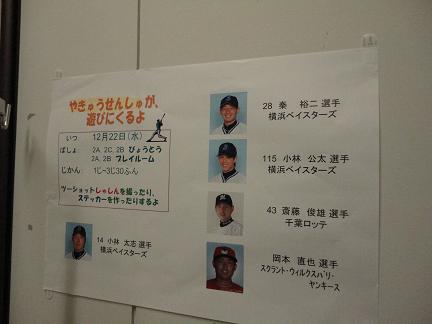 やきゅうせんしゅが、
遊びにくるよ
いつ 12月22日(水)
ばしょ 2A, 2C, 2B びょうとう
2A, 2B プレイルーム
じかん 1じ~3じ30ふん
ツーショットしゃしんを撮ったり、
ステッカーを作ったりするよ
14 小林 太志 選手
横浜ベイスターズ
28 秦 裕二 選手
横浜ベイスターズ
115 小林 公太 選手
横浜ベイスターズ
43 斎藤 俊雄 選手
千葉ロッテ
岡本 直也 選手
スクラント・ウィルクスバリ・
ヤンキース